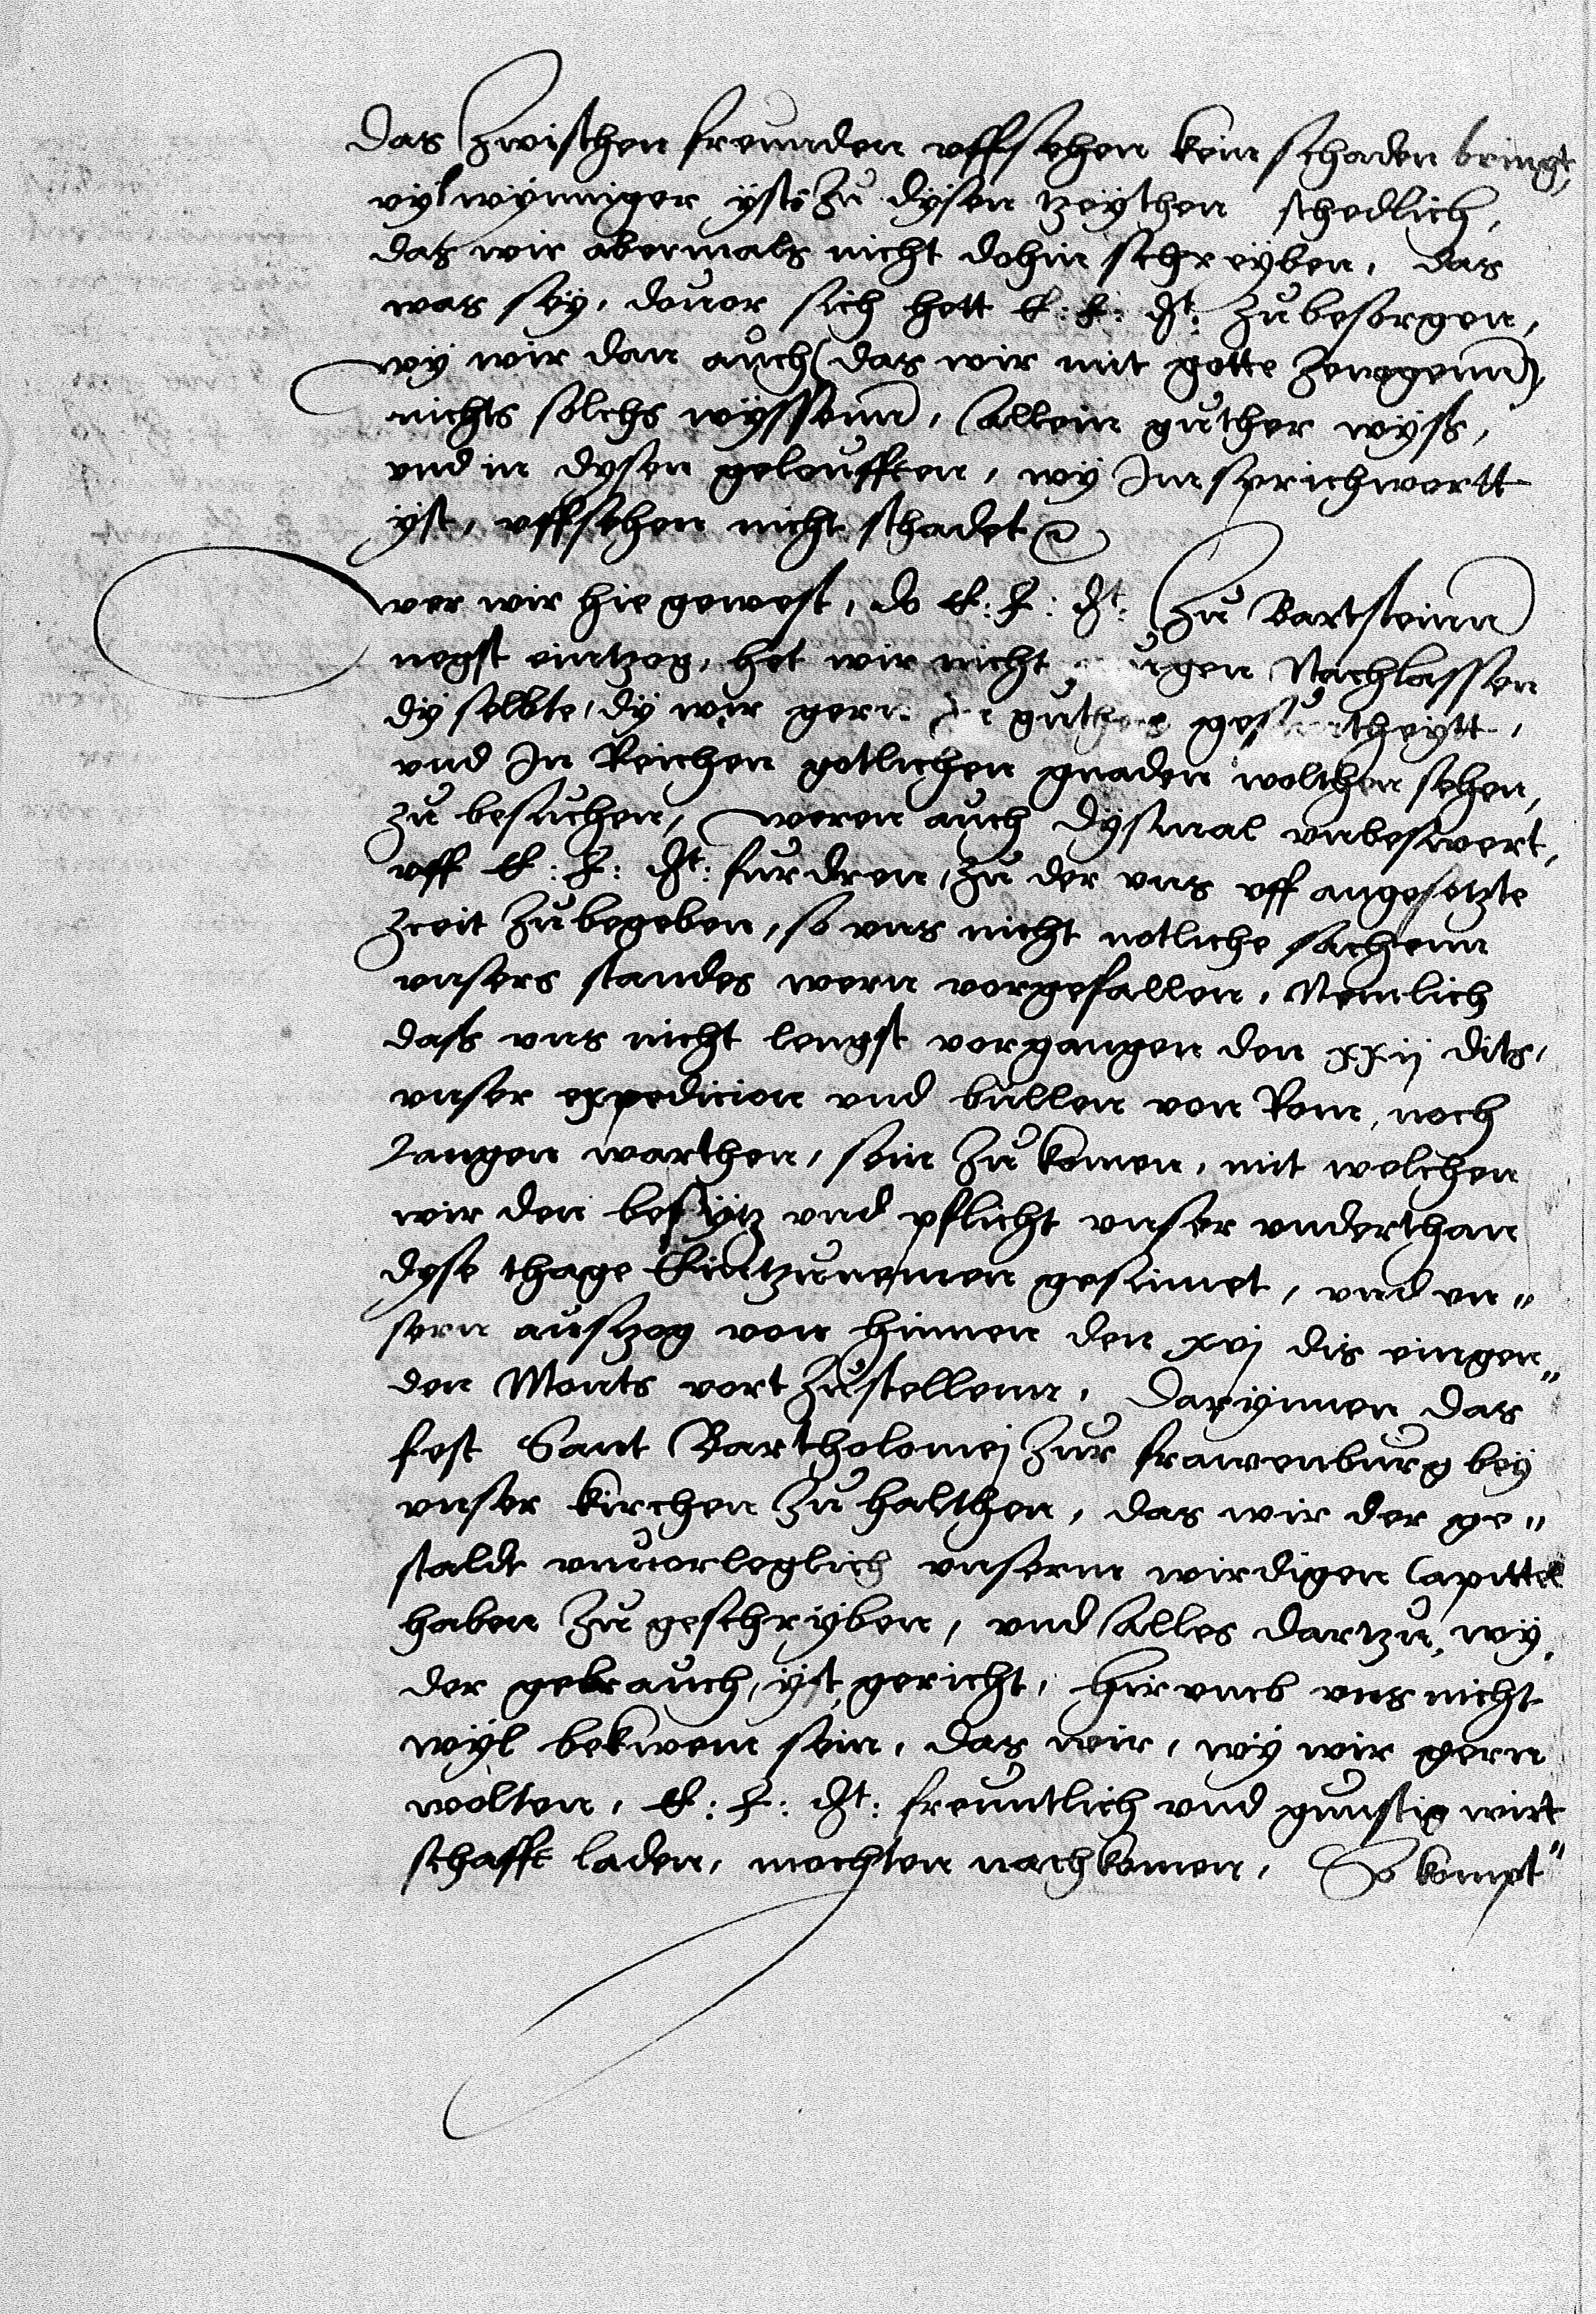 das zwischen freunden uffsehen kein schaden bringt,
vyl wyniger yst zu dysen tzeythen schedlich,
das wir abermals nicht dohin schreyben, das
was sey, douor sich hett E: F: Dt: zubesorgen,
wy wir dan auch (das wir mit gotte zceugenn)
nichts solchs wyssenn, Allein guther wyß,
und in dysen geloufften, wy Im sprichwortt
yst, uffsehen nicht schadet
wer wir hie gewest, do E: F: Dt: zu Bartsteinn
negst eintzog, het wir nicht Nachlassen
dy selbte, dy wir gern guther gesuntheytt,
und In Reichen gotlichen gnaden wolthen sehen,
zu besuchen, weren auch dysmal unbeswert,
uff E: F: Dt: furdren, zu der uns uff angesetzte
Zceit zubegeben, so uns nicht notliche sachenn
unsers standes wern vorgefallen, Nemlich
dass uns nicht lengst vorgangen den xxij dits,
unser expedicion und bullen von Rom, noch
langen warthen, sein zu komen, mit welchen
wir den besytz und pflicht unser underthan
dyse thage Eintzunemen gesinnet, und un"
sern austzog von hinnen den xvj dis eingen"
den Monts vort zustellenn, Darynnen das
fest Sant Bartholomej zur frawenburg bey
unser kirchen zu halthen, das wir der ge"
staldt unuorleglich unserm wirdigen Capittel
haben zu geschryben, und Alles dartzu, wy
der gebrauch, yst gericht, Hirumb uns nicht
wyl bekwem sein, das wir, wy wir gern
wolten, E: F: Dt: freuntlich und gunstig wirt
schafft laden, mochten nachkomen, So kompt"